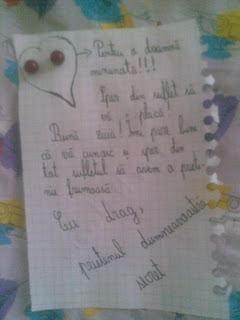 Pentru o doamnă
minunată!!!
Sper din suflet să
vă placă
Bună ziua! Îmi pare bine
că vă cunosc și sper din
tot sufletul să avem o priete-
nie frumoasă.
Cu drag,
prietenul dumneavoastră
secret